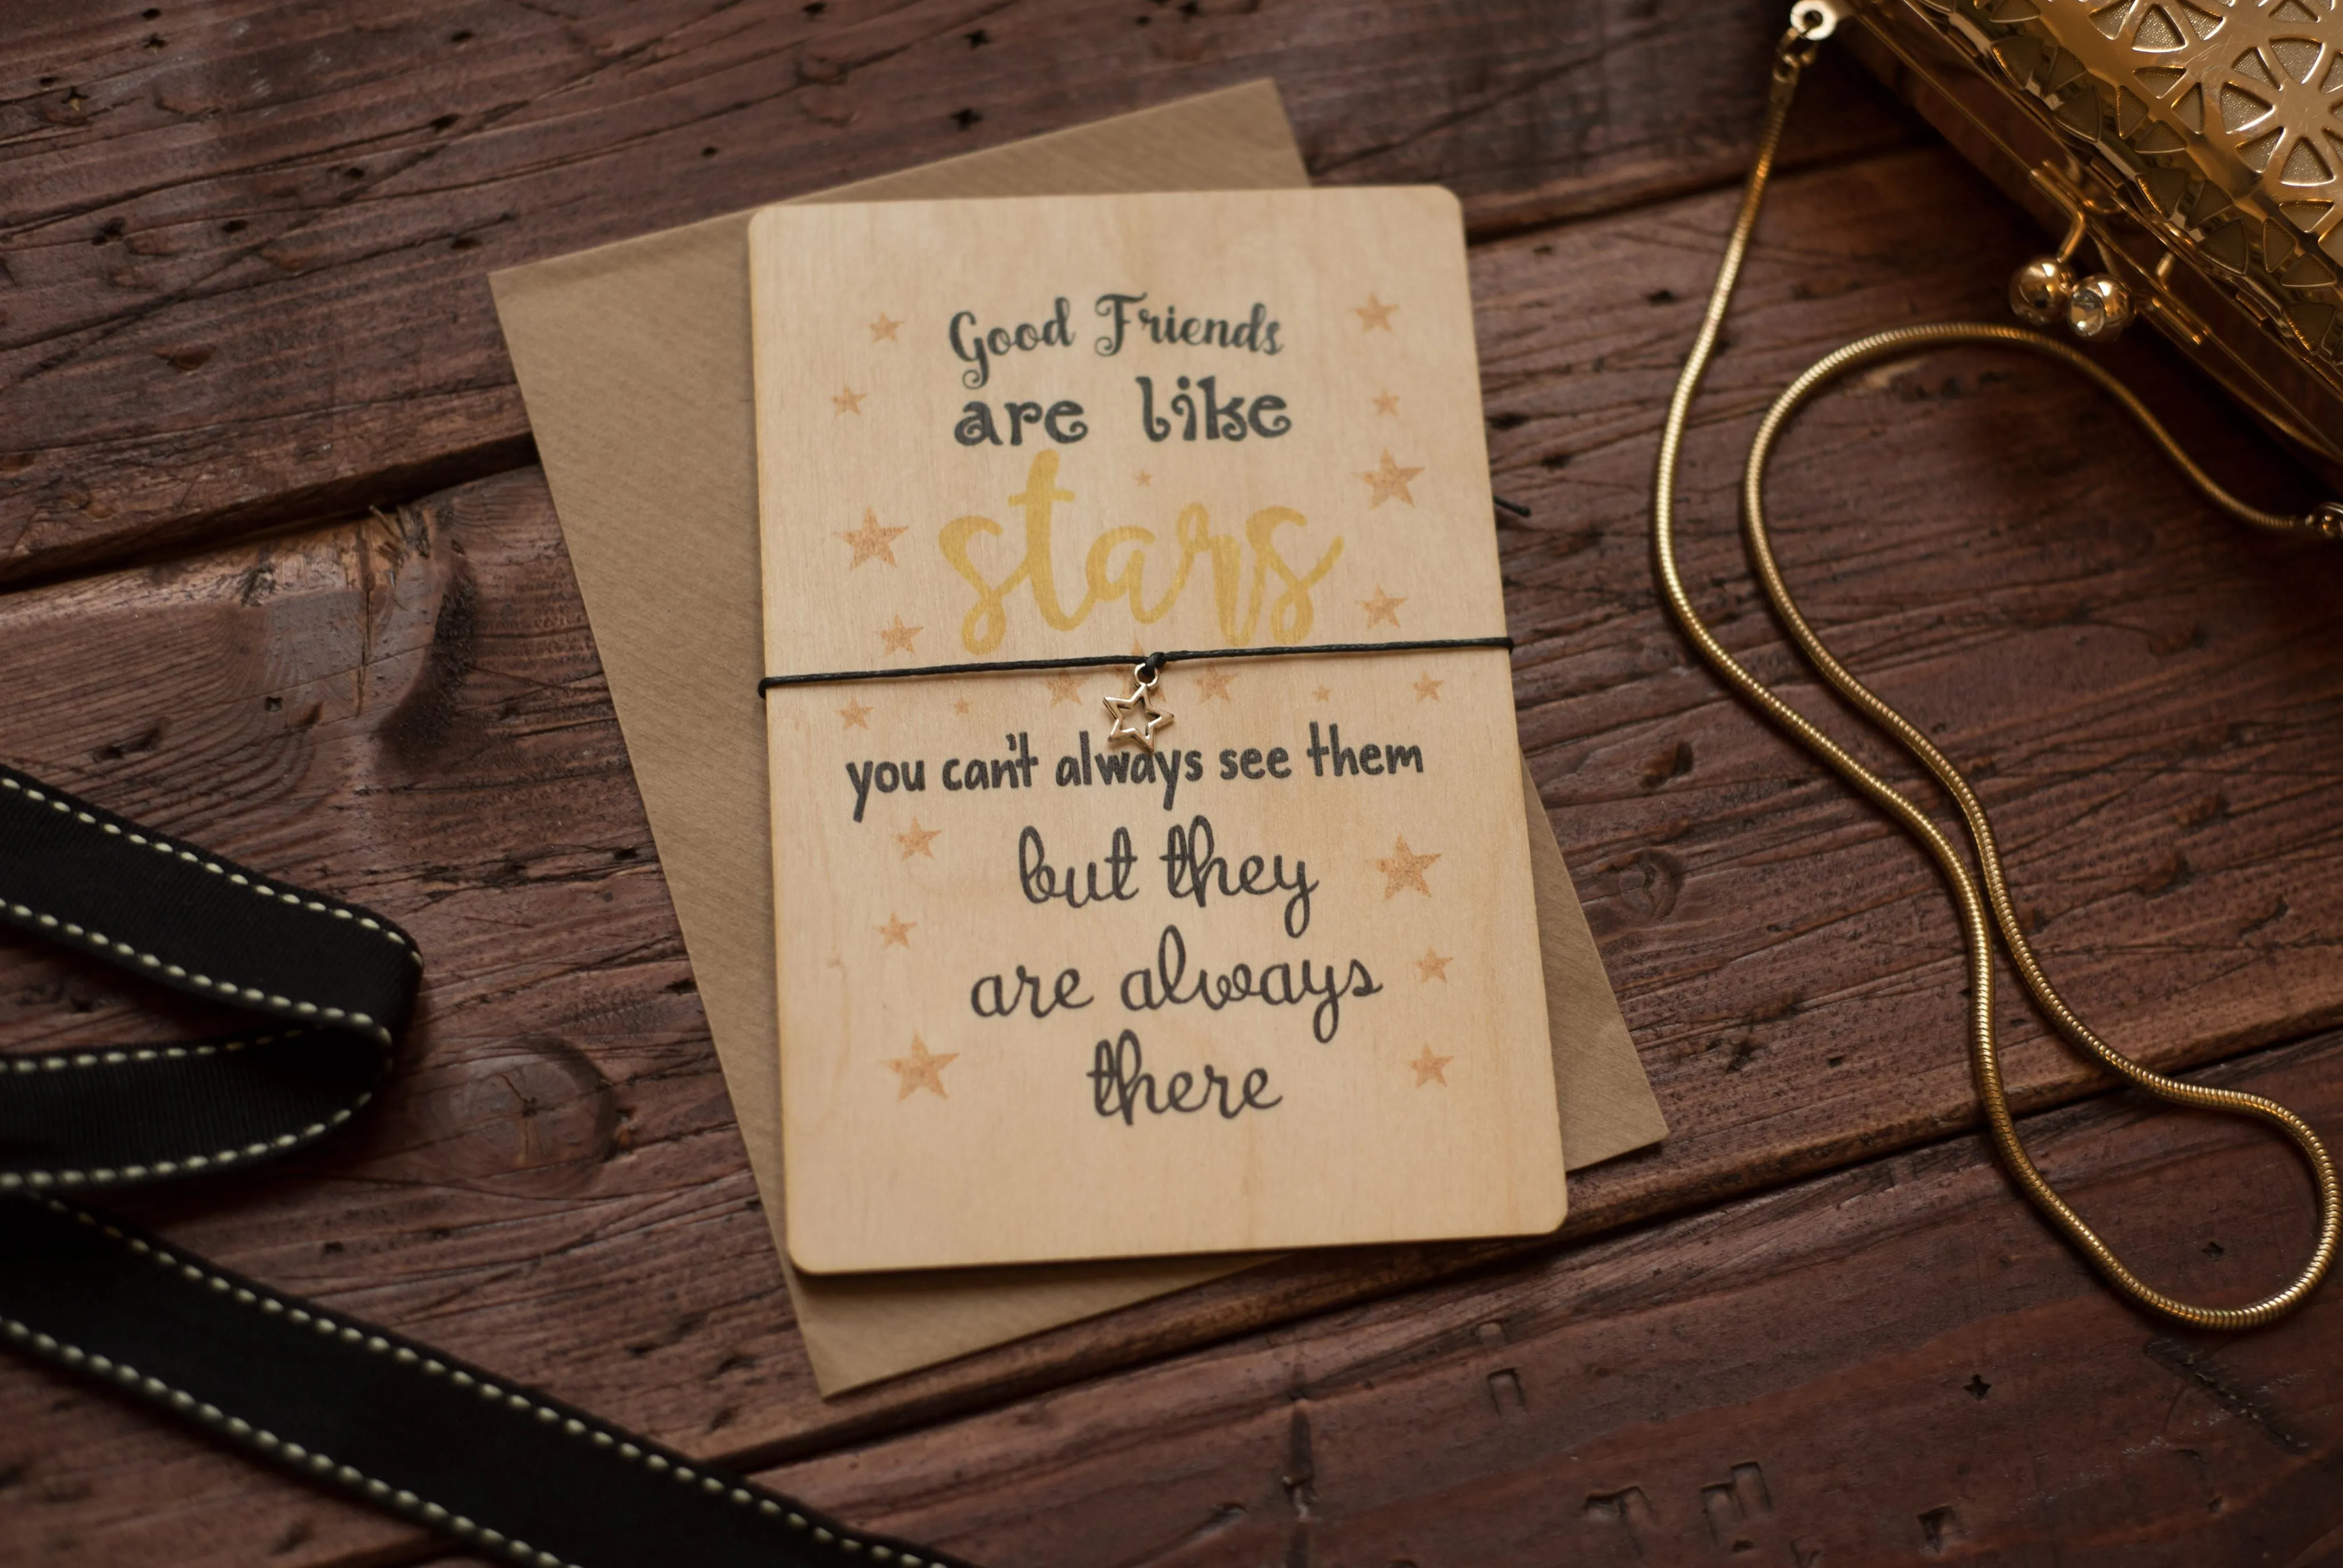 Good Friends
are like
stars
you can't always see them
but they
are always
there